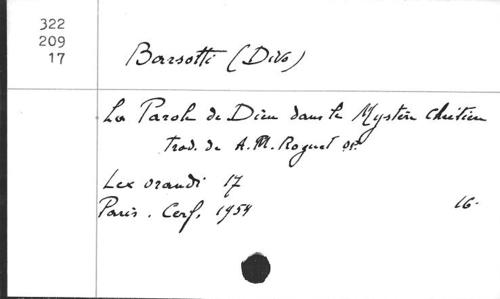 322
209
17
Barsotti (Divo)
La Parole de Dieu dans le Mystère chrétien
trad. de A.M. Roguet op.
Lex orandi 17
Paris. Cerf, 1954
16-